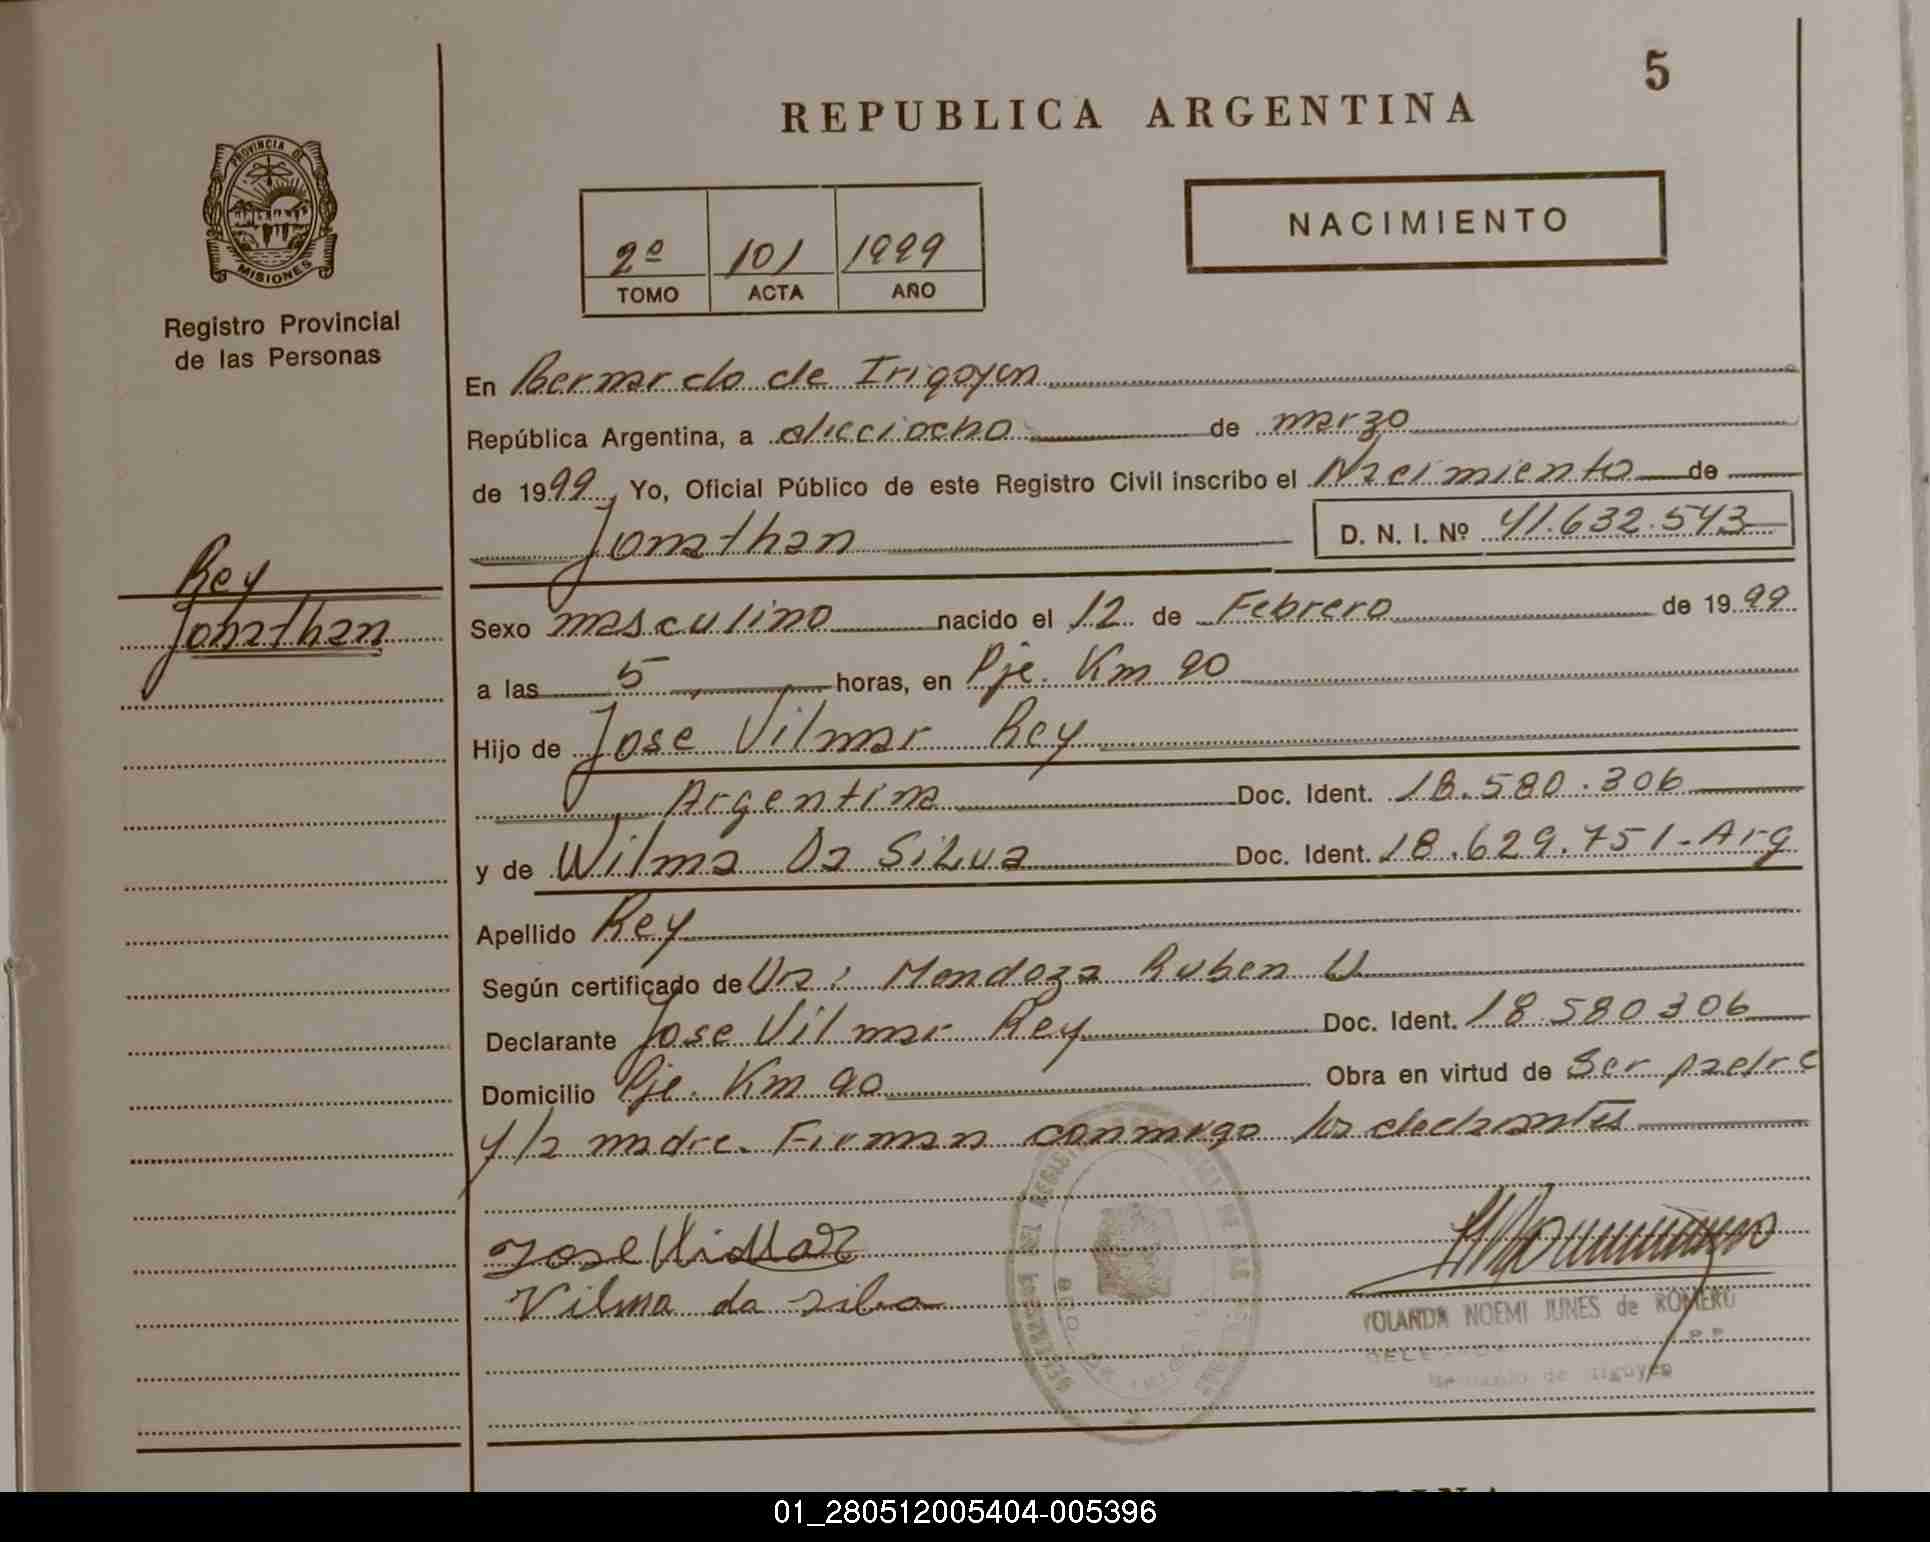 5
REPUBLICA ARGENTINA
PROVINCIA DE
MISIONES
Registro Provincial
de las Personas
2º 101 1999
TOMO ACTA AÑO
NACIMIENTO
En Bernardo de Irigoyen
República Argentina, a dieciocho de marzo
de 1999, Yo, Oficial Público de este Registro Civil inscribo el Nacimiento de
Jonathan D. N. I. Nº 41.632.543
Rey
Jonathan
Sexo masculino nacido el 12 de Febrero de 1999
a las 5 horas, en Pje. Km 90
Hijo de Jose Vilmar Rey
Argentina Doc. Ident. 18.580.306
y de Wilma Da Silva Doc. Ident. 18.629.751-Arg
Apellido Rey
Según certificado de Dr: Mendoza Ruben
Declarante Jose Vilmar Rey Doc. Ident. 18580306
Domicilio Pje. Km 90 Obra en virtud de Ser padre
y la madre. Firman conmigo los declarantes
Jose
Vilma da silva
YOLANDA NOEMI JUNES de ROMERO
de Irigoyen
01_280512005404-005396